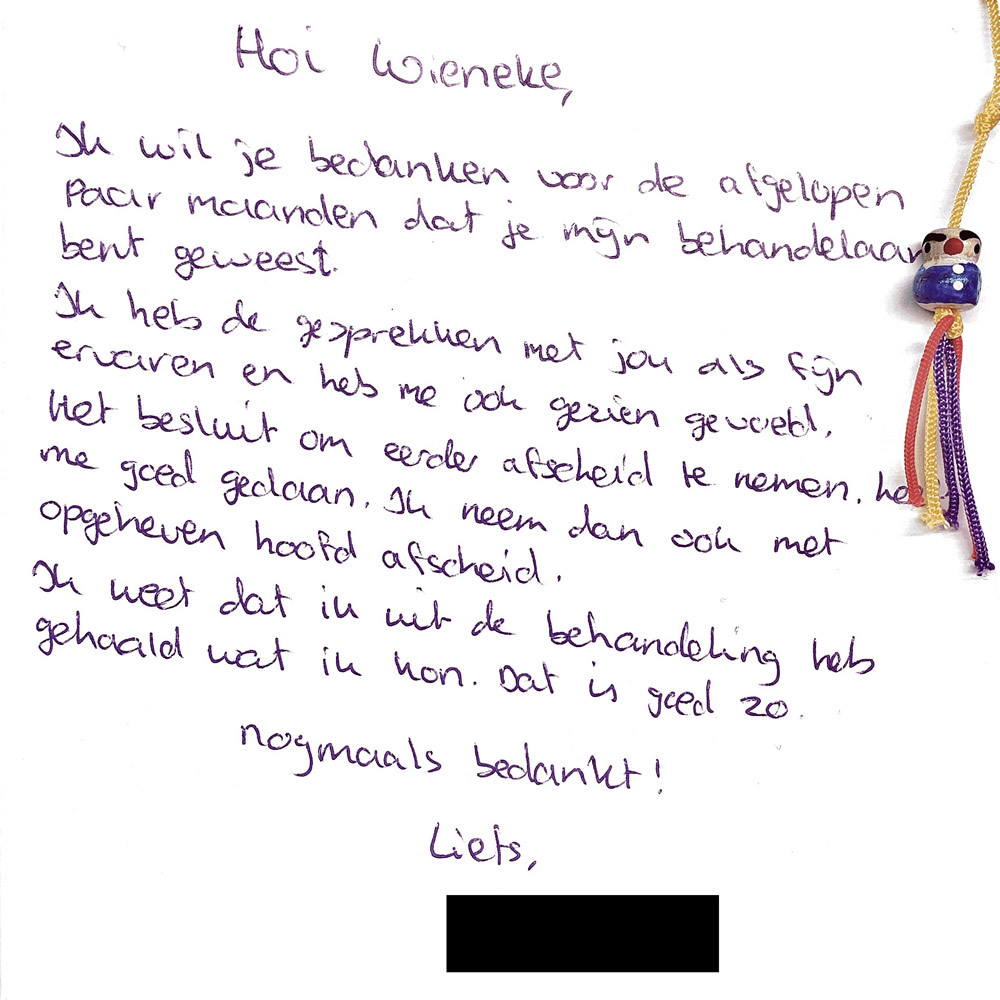 Hoi Wieneke,
Ik wil je bedanken voor de afgelopen
Paar maanden dat je mijn behandelaar
bent geweest.
Ik heb de gesprekken met jou als fijn
ervaren en heb me ook gezien gevoeld.
Het besluit om eerder afscheid te nemen.
me goed gedaan. Ik neem dan ook met
opgeheven hoofd afscheid.
Ik weet dat ik uit de behandeling heb
gehaald wat ik kon. Dat is goed zo.
nogmaals bedankt!
Liefs,